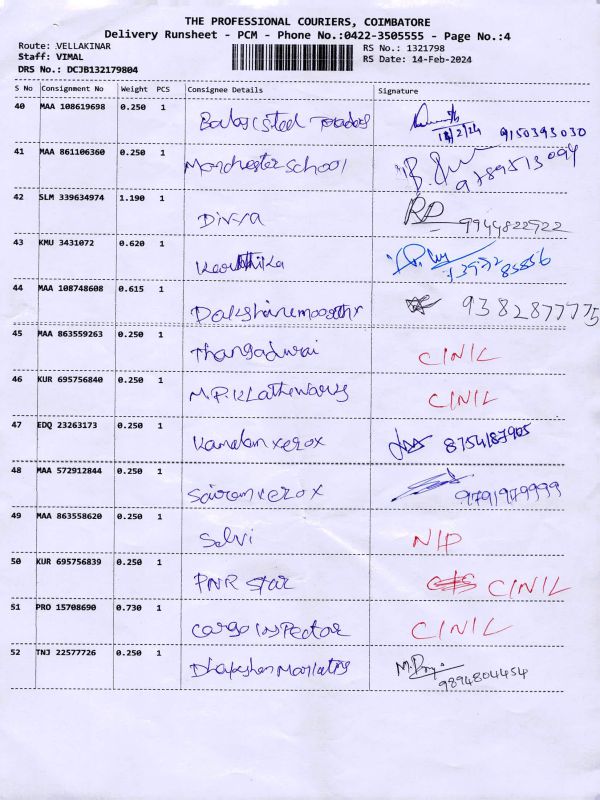 THE PROFESSIONAL COURIERS, COIMBATORE
Delivery Runsheet - PCM - Phone No.:0422-3505555 - Page No.:4
Route: VELLAKINAR RS No.: 1321798
Staff: VIMAL RS Date: 14-Feb-2024
DRS No.: DCJB132179804
S No Consignment No Weight PCS Consignee Details Signature
40 MAA 108619698 0.250 1
14/2/24 9150393030
41 MAA 861106360 0.250 1 Manchester School
42 SLM 339634974 1.190 1 Divya RD 9944822722
43 KMU 3431072 0.620 1 Karthika
44 MAA 108748608 0.615 1 9382877775
45 MAA 863559263 0.250 1 Thangadurai CINIL
46 KUR 695756840 0.250 1 M.P.K CINIL
47 EDQ 23263173 0.250 1 Kamalam xerox 8754187905
48 MAA 572912844 0.250 1 Sairam xerox 9791979999
49 MAA 863558620 0.250 1 Selvi NIP
50 KUR 695756839 0.250 1 PNR Star CINIL
51 PRO 15708690 0.730 1 Cargo Inspector CINIL
52 TNJ 22577726 0.250 1 9894804454